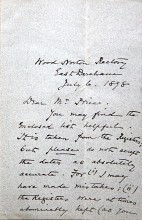 Wood Norton Rectory
East Dereham
July 6. 1898
Dear Mr
You may find the
enclosed not helpful.
It is taken from the Registers
but please do not accept
the dates as absolutely
accurate. For (1) I may
have made mistakes; (11)
the Registers were at times
abominably kept (as your